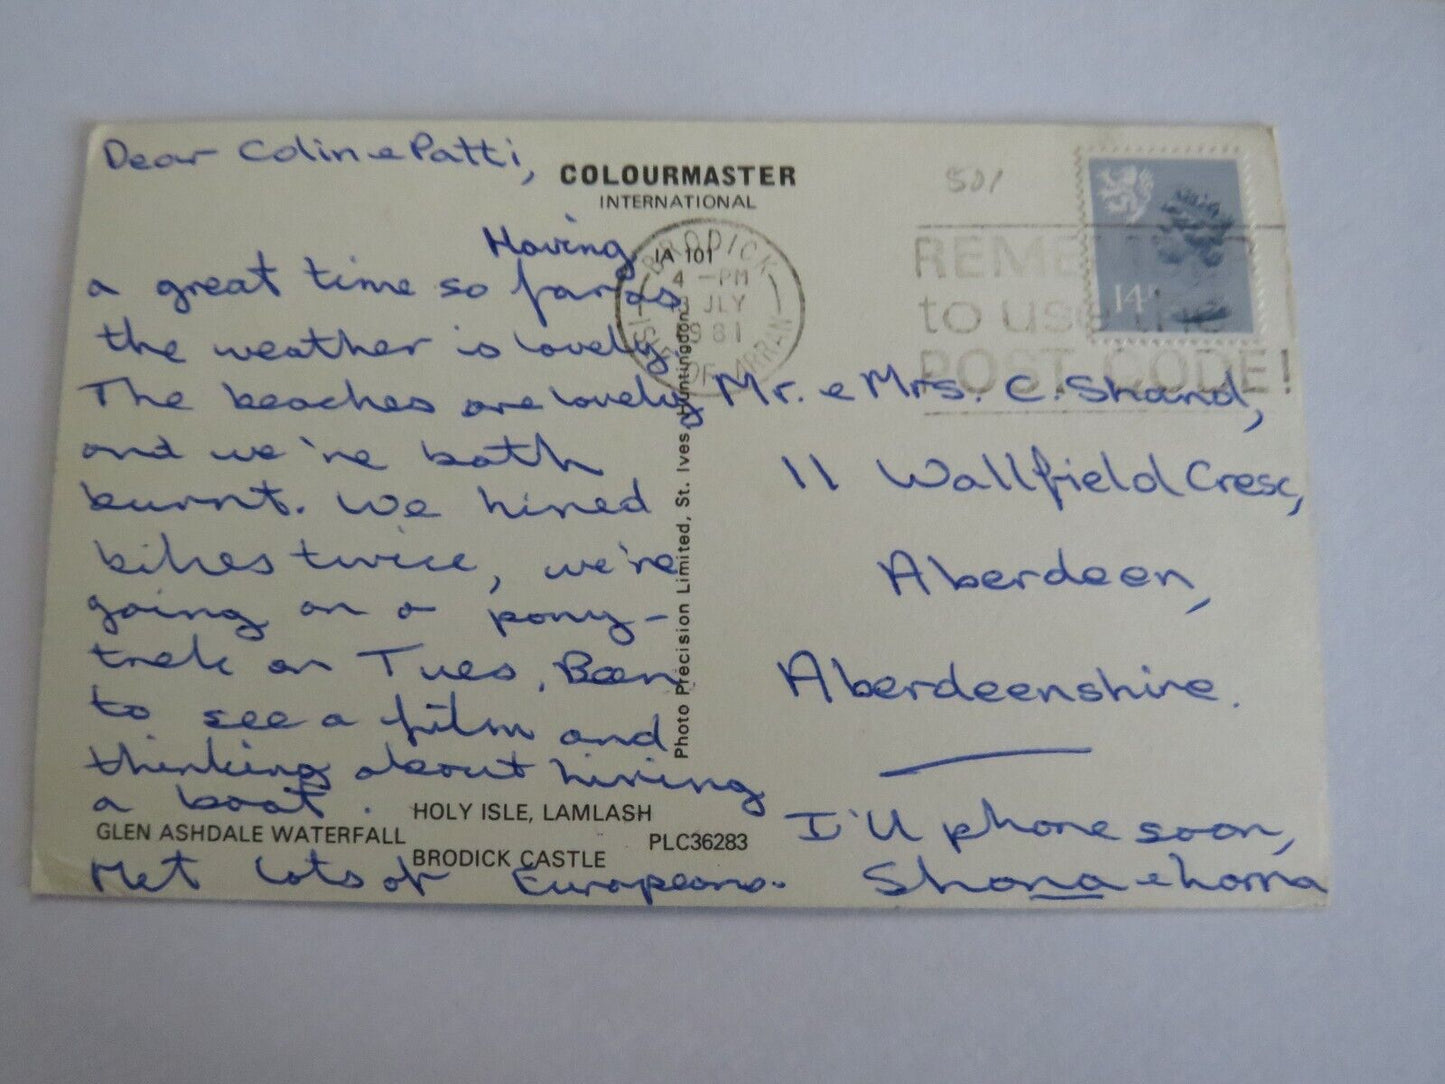 Dear Colin e Patti,
COLOURMASTER
INTERNATIONAL
501
Having
a great time so far as
the weather is lovely.
The beaches are lovely
and we're both
burnt. We hired
bikes twice, we're
going on a pony-
trek on Tues, Been
to see a film and
thinking about hiring
a boat.
Met lots of Europeans.
GLEN ASHDALE WATERFALL
HOLY ISLE, LAMLASH
BRODICK CASTLE
PLC36283
Photo Precision Limited, St. Ives, Huntingdon
IA 101
BRODICK
4 -PM
JLY
1981
ISLE OF ARRAN
REMEMBER
to use the
POST CODE!
14P
Mr. e Mrs. C. Shand,
11 Wallfield Cresc,
Aberdeen,
Aberdeenshire.
I'll phone soon,
Shona e Lorna